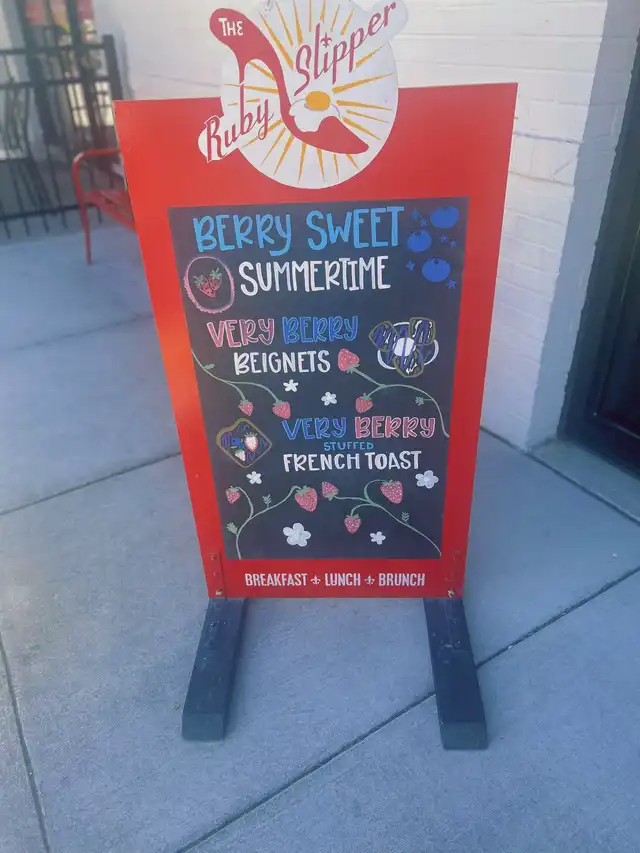 THE
Ruby Slipper
BERRY SWEET
SUMMERTIME
VERY BERRY
BEIGNETS
VERY BERRY
STUFFED
FRENCH TOAST
BREAKFAST ⚜ LUNCH ⚜ BRUNCH